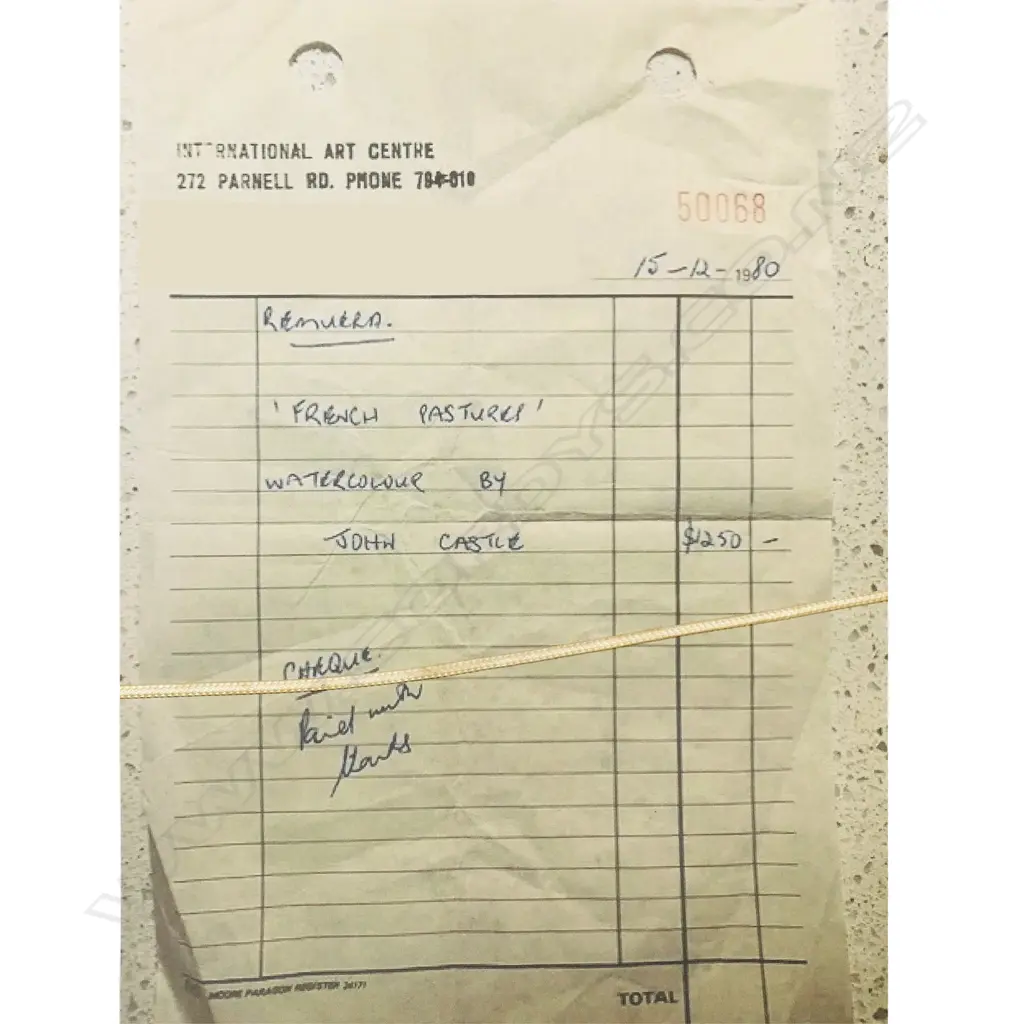 INTERNATIONAL ART CENTRE
272 PARNELL RD. PHONE
50068
15-12-1980
REMUERA.
'FRENCH PASTURES'
WATERCOLOUR BY
JOHN CASTLE $1250 -
CHEQUE.
Paid with
thanks
MOORE PARAGON REGISTER 26171
TOTAL